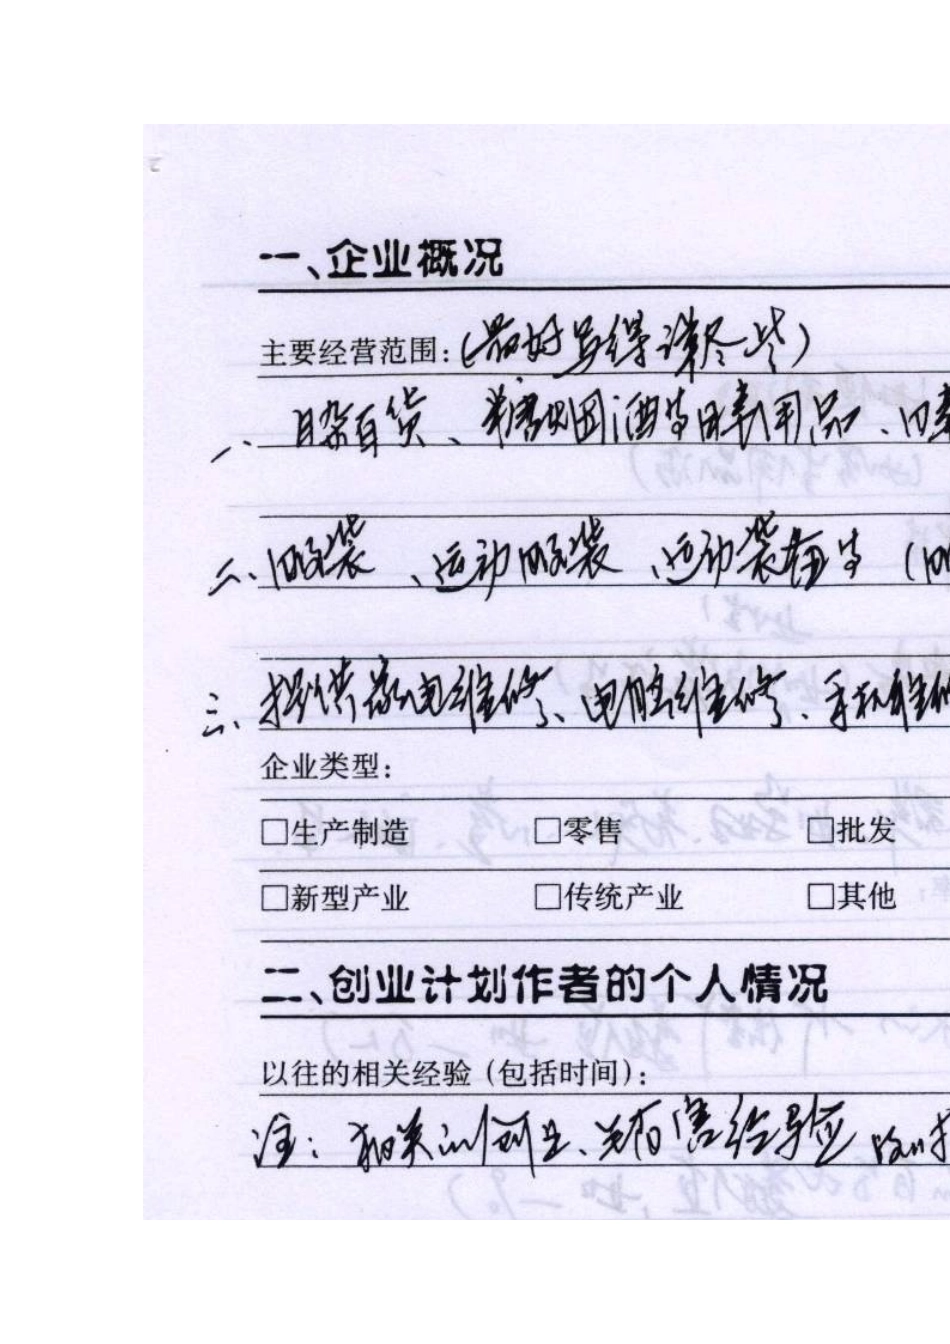 一、企业概况
主要经营范围:(最好写得详尽些)
一、日杂百货、糖烟酒等日常用品、日常
二、服装、运动服装、运动装备等(服
三、提供家电维修、电脑维修、手机维修
企业类型:
□生产制造 □零售 □批发
□新型产业 □传统产业 □其他
二、创业计划作者的个人情况
以往的相关经验(包括时间):
注:相关的创业、经验